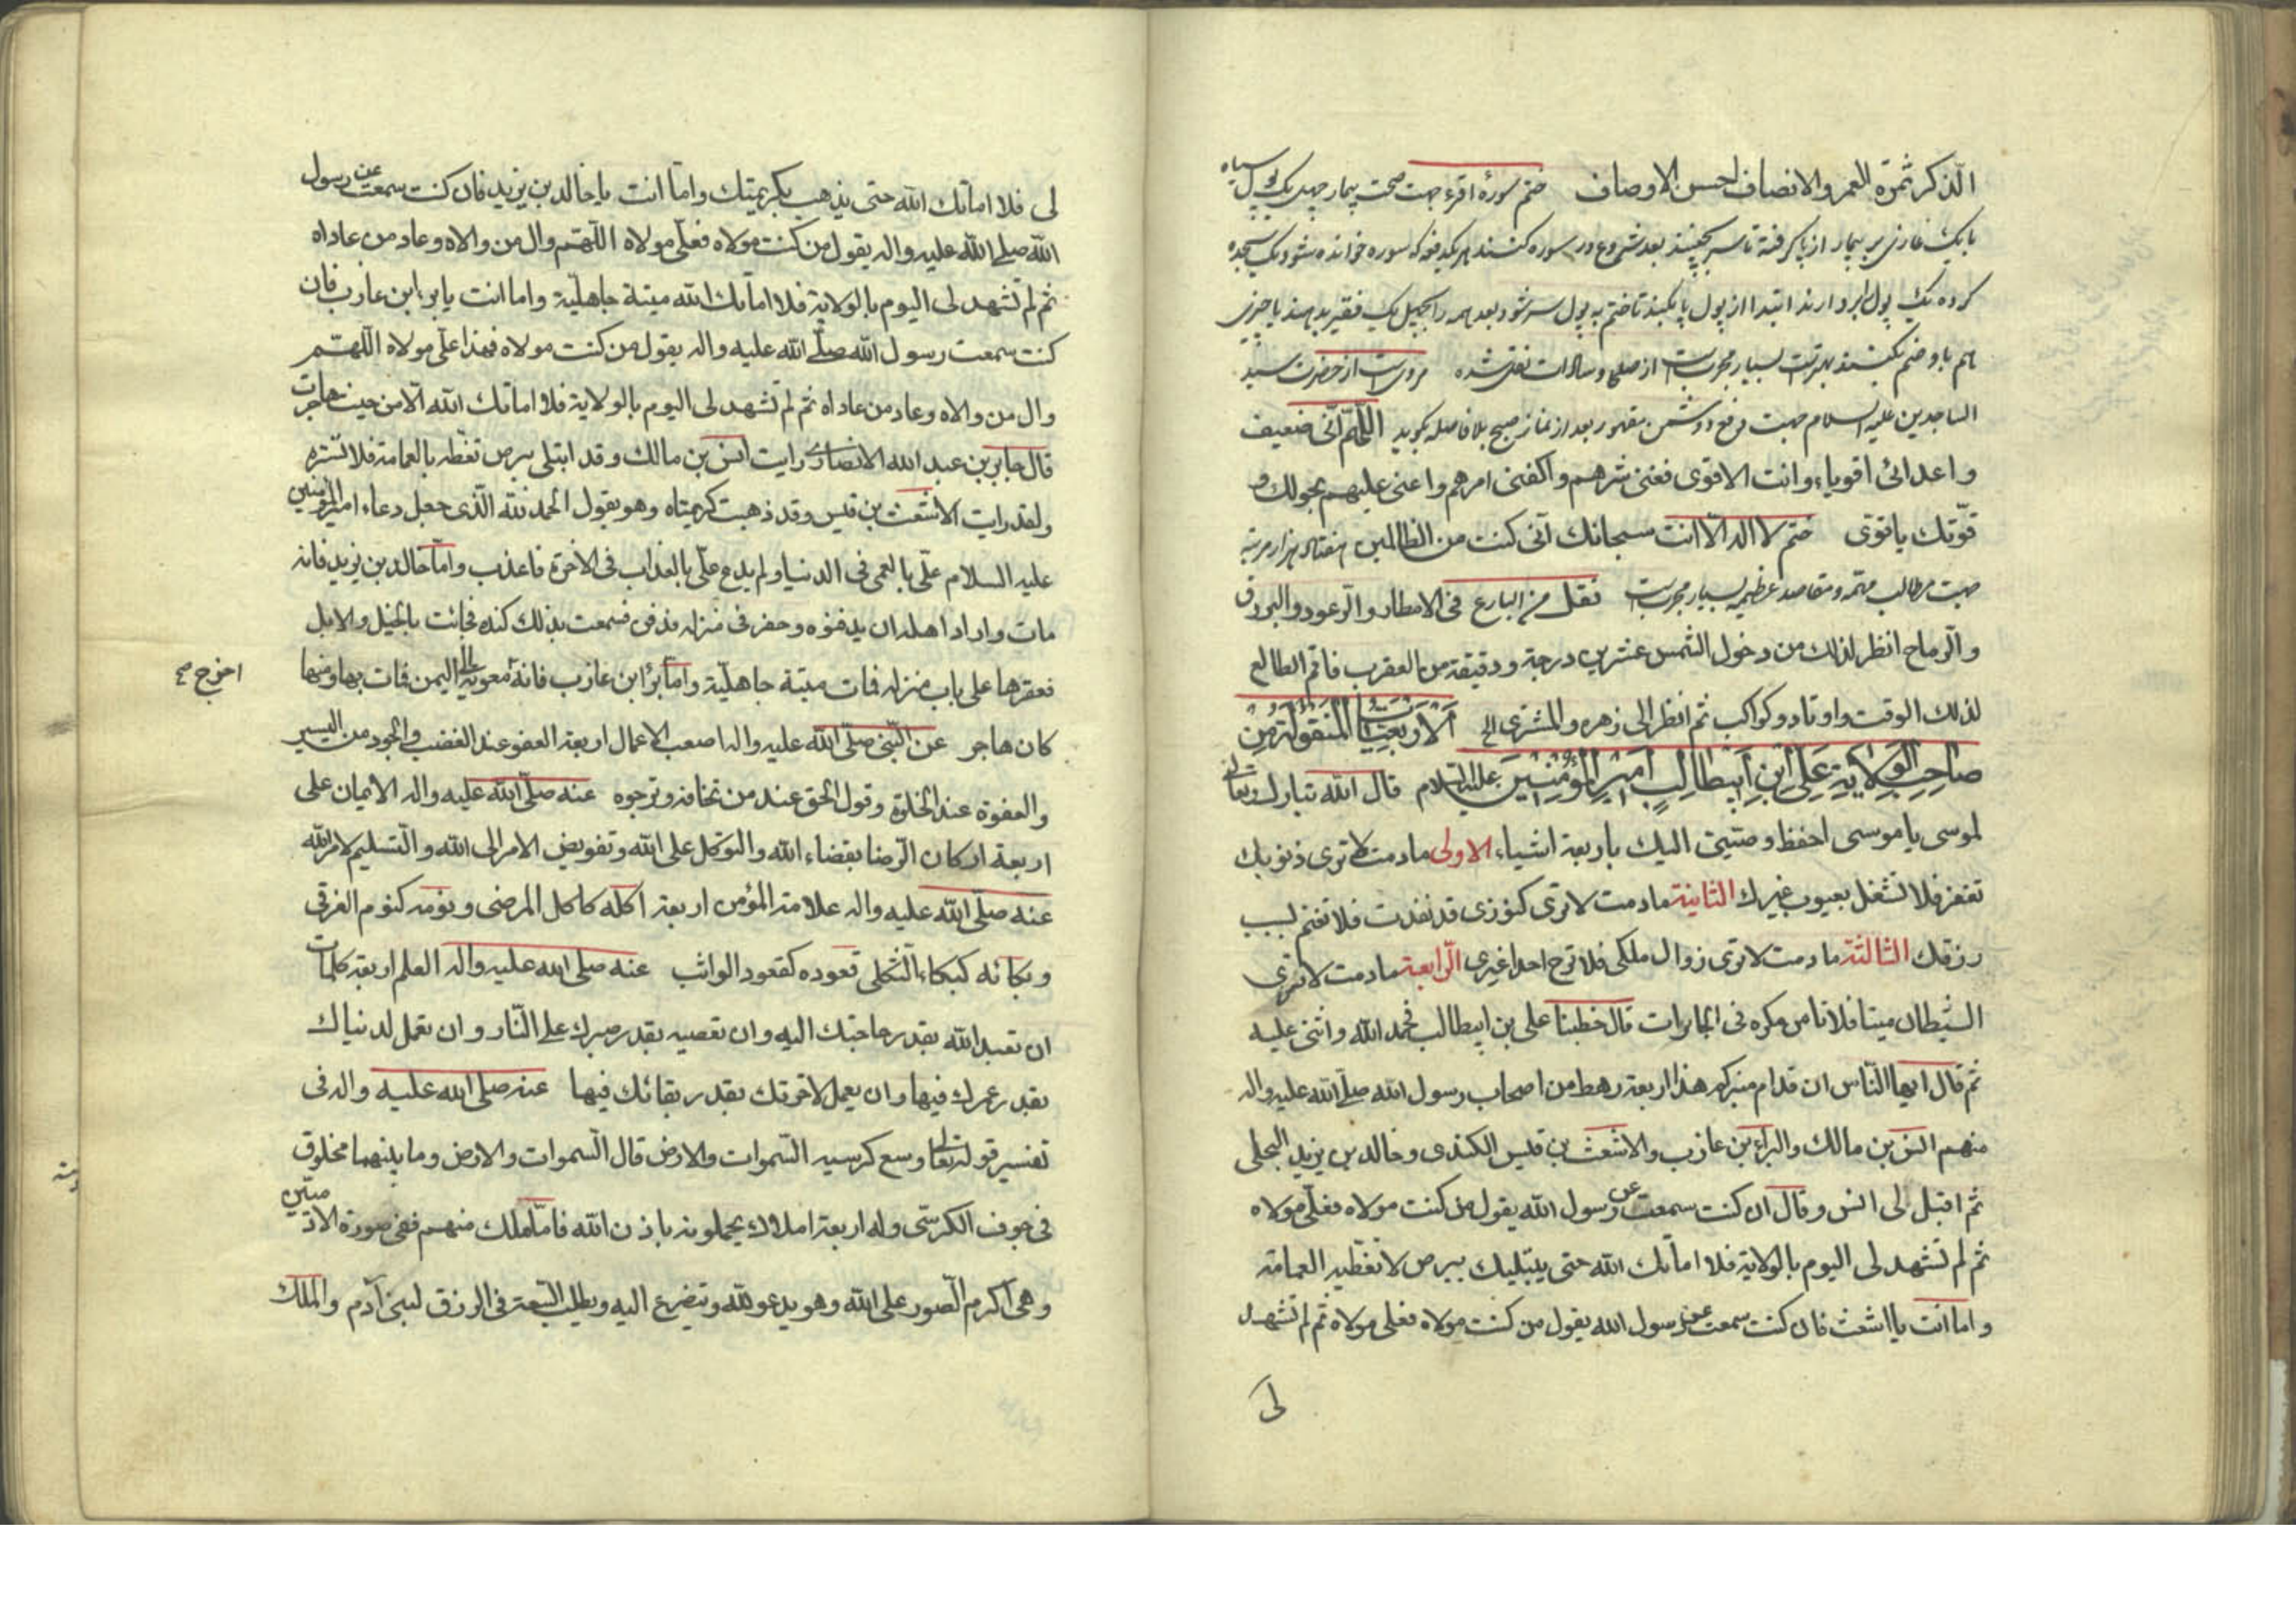 الذكر ثمرة العمر والانصاف احسن الاوصاف ختم سورهٔ اقرء جهت صحت بیمار چهل یک پول سیاه
با یک غازی بر بیمار از پا گرفته تا سر بچینند بعد شروع در سوره کنند هر یک دفعه که سوره خوانده شود یک سجده
کرده یک پول بردارند ابتدا از پول پا بکنند تا ختم به پول سر شود بعد همه را بچهل یک فقیر بدهند یا چیزی
هم باو ضم بکنند بهترست بسیار مجربست از صلحا و سادات نقل شده مرویست از حضرت سید
الساجدین علیه السلام جهت دفع دشمن مقهور بعد از نماز صبح بلا فاصله بگوید اللّهمّ انّی ضعیف
واعدائی اقویاء وانت الاقوی فغنی شرهم واکفنی امرهم واعنی علیهم بحولك و
قوّتك یا قوی ختم لا اله الّا انت سبحانك انّی کنت من الظالمین هفتاد هزار مرتبه
جهت مطالب مهمه ومقاصد عظیمه بسیار مجربست نقل من البارع فی الامطار والرعود والبروق
والرماح انظر لذلك من دخول الشمس عشرین درجة ودقیقة من العقرب فاقم الطالع
لذلك الوقت واوتاد وکواکب ثم انظر الی زهره والمشتری الخ الاربعینیات المنقولة من
صاحب الولایة علی ابن ابیطالب امیر المؤمنین علیه السّلام قال الله تبارك وتعالی
لموسی یا موسی احفظ وصیتی الیك باربعة اشیاء الاولی مادمت لا تری ذنوبك
تغفر فلا تشغل بعیوب غیرك الثانیة مادمت لا تری کنوزی قد نفذت فلا تغتم لسبب
رزقك الثالثة مادمت لا تری زوال ملکی فلا ترج احدا غیری الرّابعة مادمت لا تری
الشیطان میتا فلا تامن مکره فی الجابرات قال خطبنا علی بن ابیطالب فحمد الله واثنی علیه
ثم قال ایها النّاس ان قدام منبرکم هذا اربعة رهط من اصحاب رسول الله صلّی الله علیه واله
منهم انس بن مالك والبراء بن عازب والاشعث بن قیس الکندی وخالد بن یزید البجلی
ثم اقبل لی انس وقال ان کنت سمعت عن رسول الله یقول من کنت مولاه فعلّی مولاه
ثم لم تشهد لی الیوم بالولایة فلا اماتك الله حتی یبتلیك ببرص لا تغطّیه العمامة
واما انت یا اشعث فان کنت سمعت عن رسول الله یقول من کنت مولاه فعلی مولاه ثم لم تشهد
لی
لی فلا اماتك الله حتی یذهب بکریمتیك وامّا انت یا خالد بن یزید فان کنت سمعت عن رسول
الله صلی الله علیه واله یقول من کنت مولاه فعلّی مولاه اللّهم وال من والاه وعاد من عاداه
ثم لم تشهد لی الیوم بالولایة فلا اماتك الله میتة جاهلیّة واما انت یا براء ابن عازب فان
کنت سمعت رسول الله صلّی الله علیه واله یقول من کنت مولاه فهذا علّی مولاه اللّهم
وال من والاه وعاد من عاداه ثم لم تشهد لی الیوم بالولایة فلا اماتك الله الا من حیث هاجرت
قال جابر بن عبد الله الانصاری رایت انس بن مالك وقد ابتلی ببرص تغطّه بالعمامة فلا تستره
ولقد رایت الاشعث بن قیس وقد ذهبت کریمتاه وهو یقول الحمد لله الّذی جعل دعاء امیر المؤمنین
علیه السلام علّی بالعمی فی الدنیا ولم یدع علّی بالعذاب فی الاخرة فاعذب وامّا خالد بن یزید فانه
مات واراد اهله ان یدفنوه وحفر فی منزله فدفن فسمعت بذلك کنده فجائت بالخیل والابل
فعقرها علی باب منزله فمات میتة جاهلیّة وامّا برّا ابن عازب فانه معویة الی الیمن فمات بها ومنها
اخرج صح
کان هاجر عن النّبی صلّی الله علیه واله اصعب الاعمال اربعة العفو عند الغضب والجود من الیسیر
والعفوة عند الخلوة وقول الحق عند من تخافه وترجوه عنه صلّی الله علیه واله الایمان علی
اربعة ارکان الرّضا بقضاء الله والتوکل علی الله وتفویض الامر الی الله والتّسلیم لامر الله
عنه صلّی الله علیه واله علامة المؤمن اربعة اکله کاکل المرضی ونومه کنوم الغرقی
وبکائه کبکاء الثّکلی قعوده کقعود الواثب عنه صلی الله علیه واله العلم اربعة کلمات
ان تعبد الله بقدر حاجتك الیه وان تعصیه بقدر صبرك علی النّار وان تعمل لدنیاك
بقدر عمرك فیها وان یعمل لاخرتك بقدر بقائك فیها عنه صلی الله علیه واله فی
تفسیر قوله تعالی وسع کرسیه السّموات والارض قال السّموات والارض وما بینهما مخلوق
فی جوف الکرسّی وله اربعة املاك یحملونه باذن الله فامّا ملك منهم ففی صورة الادمیّین
وهی اکرم الصّور علی الله وهو یدعو لله ویتضرع الیه ویطلب السّعة فی الرزق لبنی آدم والملك